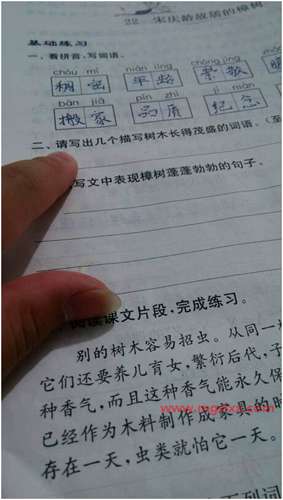 22 宋庆龄故居的樟树
基础练习
一、看拼音，写词语。
chóu mì nián líng chóng jìng
稠密 年龄 崇敬
bān jiā pǐn zhì jì niàn
搬家 品质 纪念
二、请写出几个描写树木长得茂盛的词语。（至
写文中表现樟树蓬蓬勃勃的句子。
阅读课文片段，完成练习。
别的树木容易招虫。从同一
它们还要养儿育女，繁衍后代，子
种香气，而且这种香气能永久保
已经作为木料制作成家具的时
存在一天，虫类就怕它一天。